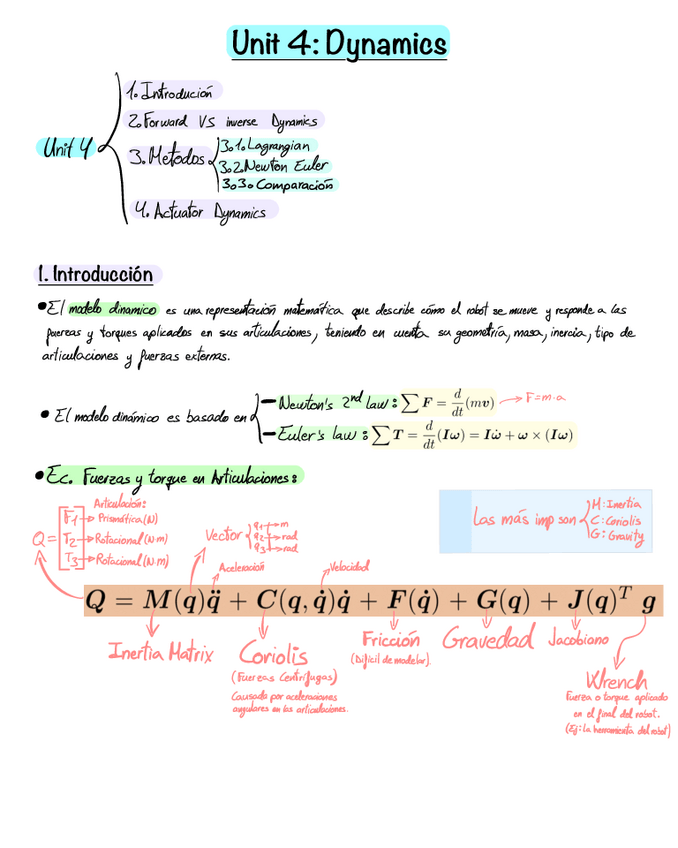 Unit 4: Dynamics
Unit 4
1. Introdución
2. Forward VS inverse Dynamics
3. Metodos
3.1. Lagrangian
3.2. Newton Euler
3.3. Comparación
4. Actuator Dynamics
1. Introducción
•El modelo dinamico es una representación matemática que describe cómo el robot se mueve y responde a las
fuerzas y torques aplicados en sus articulaciones, teniendo en cuenta su geometría, masa, inercia, tipo de
articulaciones y fuerzas externas.
• El modelo dinámico es basado en
– Newton's 2nd law: ∑ F = d/dt (mv) → F=m·a
– Euler's law: ∑ T = d/dt (Iω) = Iω̇ + ω × (Iω)
•Ec. Fuerzas y torque en Articulaciones:
Articulación:
Q = [F1 → Prismática (N)
T2 → Rotacional (N·m)
T3 → Rotacional (N·m)]
Vector
q1 → m
q2 → rad
q3 → rad
Las más imp son
M: Inertia
C: Coriolis
G: Gravity
Aceleracion
Velocidad
Q = M(q)q̈ + C(q, q̇)q̇ + F(q̇) + G(q) + J(q)ᵀ g
Inertia Matrix
Coriolis
(Fuerzas Centrífugas)
Causada por aceleraciones
angulares en las articulaciones.
Fricción
(Dificil de modelar)
Gravedad
Jacobiano
Wrench
Fuerza o torque aplicado
en el final del robot.
(Ej: la herramienta del robot)